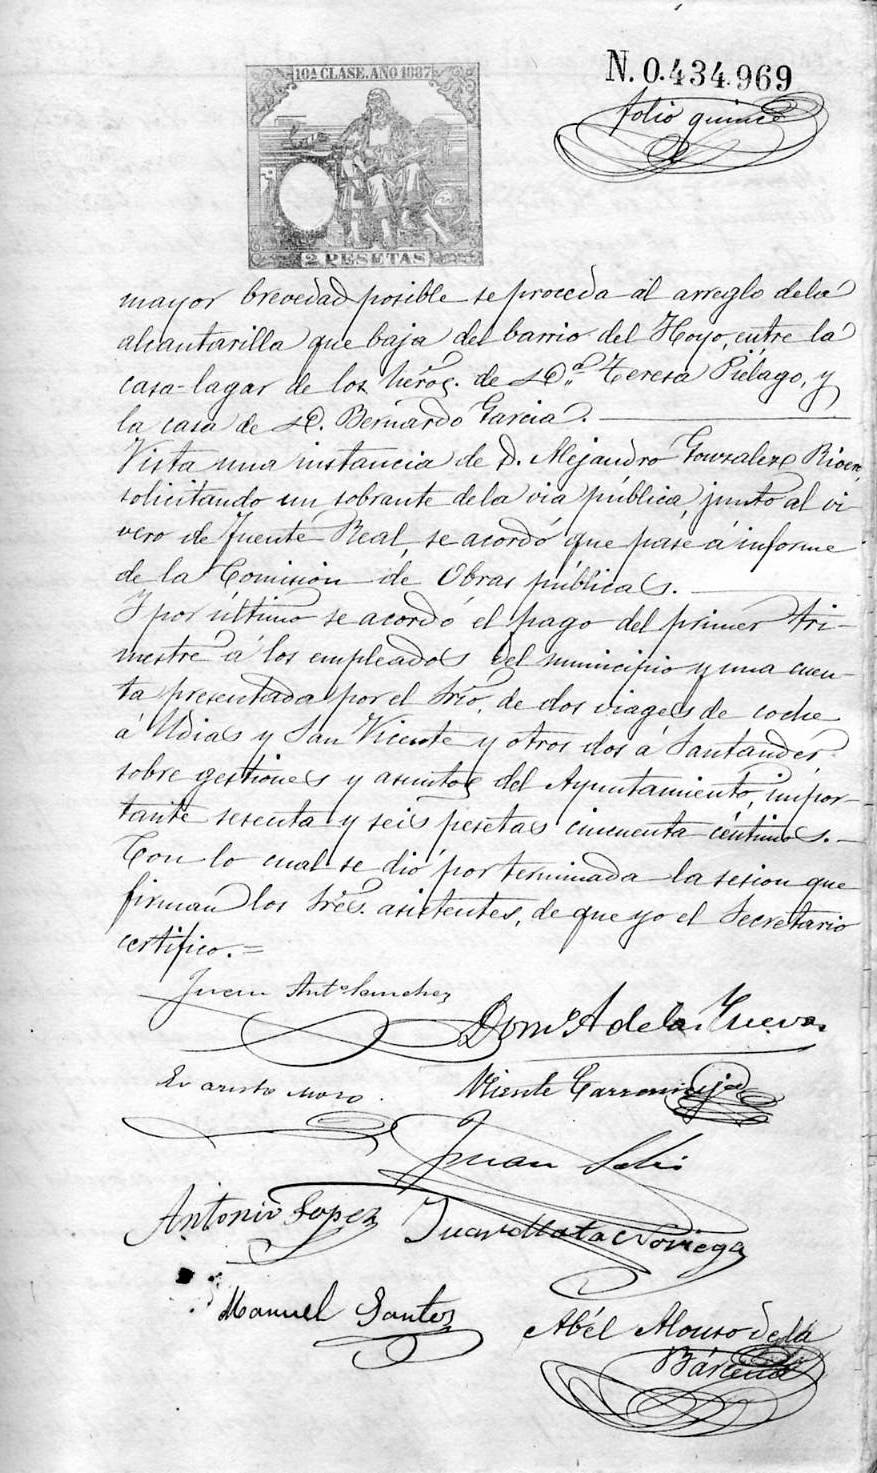 10ª CLASE. AÑO 1887
N. 0.434.969
folio quince
2 PESETAS
mayor brevedad posible se proceda al arreglo dela
alcantarilla que baja del barrio del Hoyo, entre la
casa-lagar de los heros. de D.ª Teresa Piélago, y
la casa de D. Bernardo Garcia.
Vista una instancia de D. Alejandro Gonzalez Rivero,
solicitando un sobrante dela via pública, junto al vi-
vero de Fuente Real, se acordó que pase á informe
de la Comision de Obras públicas.
Y por último se acordó el pago del primer tri-
mestre á los empleados del municipio y una cuen-
ta presentada por el Srio. de dos viages de coche
á Udias y San Vicente y otros dos á Santander,
sobre gestiones y asuntos del Ayuntamiento, impor-
tante sesenta y seis pesetas cincuenta céntimos.-
Con lo cual se dió por terminada la sesion que
firman los Sres. asistentes, de que yo el Secretario
certifico.=
Juan Antº Sanchez
Domº A de la Cueva
Evaristo Moro.
Vicente
Juan
Antonio Lopez
Juan Mata Noriega
Manuel Santos
Abél Alonso de la
Bárcena